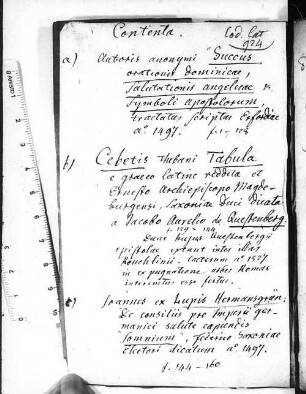 Contenta.
Cod. Lat.
924
a) Autoris anonymi Succus
orationis Dominicae,
Salutationis angelicae &
Symboli Apostolorum,
tractatus scriptus Erfordiae
aº. 1497.
f. 1 -
b) Cebetis Thebani Tabula
e graeco latine reddita et
Ernesto Archiepiscopo Magde-
burgensi, Saxoniae Duci Dicata
a Jacobo Aurelio de Questenberg.
f. 129 - 144
Duae hujus Questenbergii
epistolae extant inter illas
Reuchlini. Caeterum aº. 1527
in expugnatione urbis Romae
interemtus esse fertur.
c) Joannes ex Lupis Hermansgrün:
De consiliis pro Imperii ger-
manici salute capiendis
Somnium, Federico Saxoniae
Electori dicatum aº. 1497.
f. 144 - 160